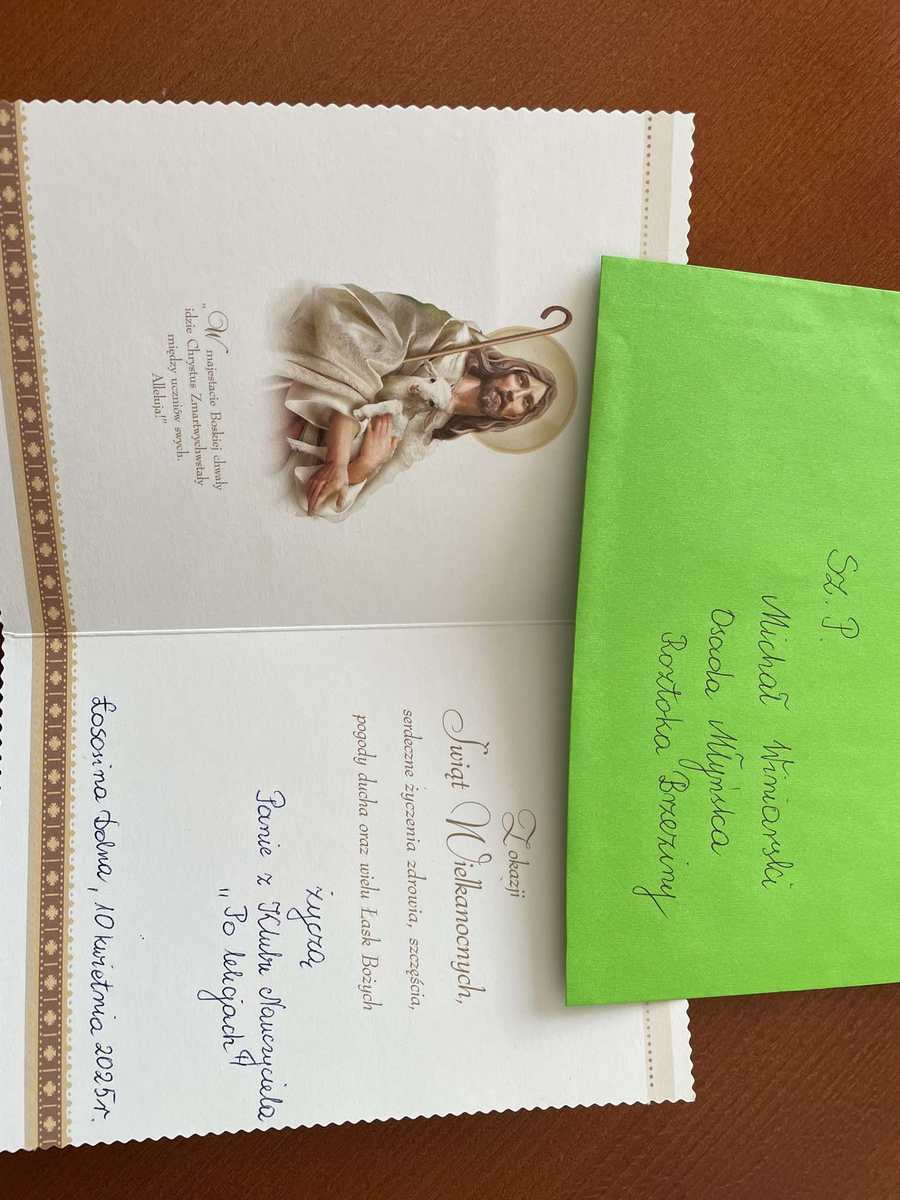 Sz. P.
Michał Winiarski
Osada Młyńska
Roztoka Brzeziny
„W majestacie Boskiej chwały
idzie Chrystus Zmartwychwstały
między uczniów swych.
Alleluja!”
Z okazji
Świąt Wielkanocnych,
serdeczne życzenia zdrowia, szczęścia,
pogody ducha oraz wielu Łask Bożych
życzą
Panie z Klubu Nauczyciela
„Po lekcjach”
Łososina Dolna, 10 kwietnia 2025r.